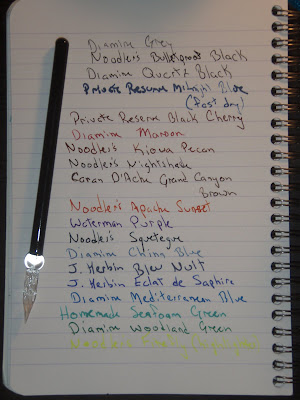 Diamine Grey
Noodler's Bulletproof Black
Diamine Quartz Black
Private Reserve Midnight Blue
(fast dry)
Private Reserve Black Cherry
Diamine Maroon
Noodler's Kiowa Pecan
Noodler's Nightshade
Caran D'Ache Grand Canyon
Brown
Noodler's Apache Sunset
Waterman Purple
Noodler's
Diamine China Blue
J. Herbin Bleu Nuit
J. Herbin Eclat de Saphire
Diamine Mediterranean Blue
Homemade Seafoam Green
Diamine Woodland Green
Noodler's